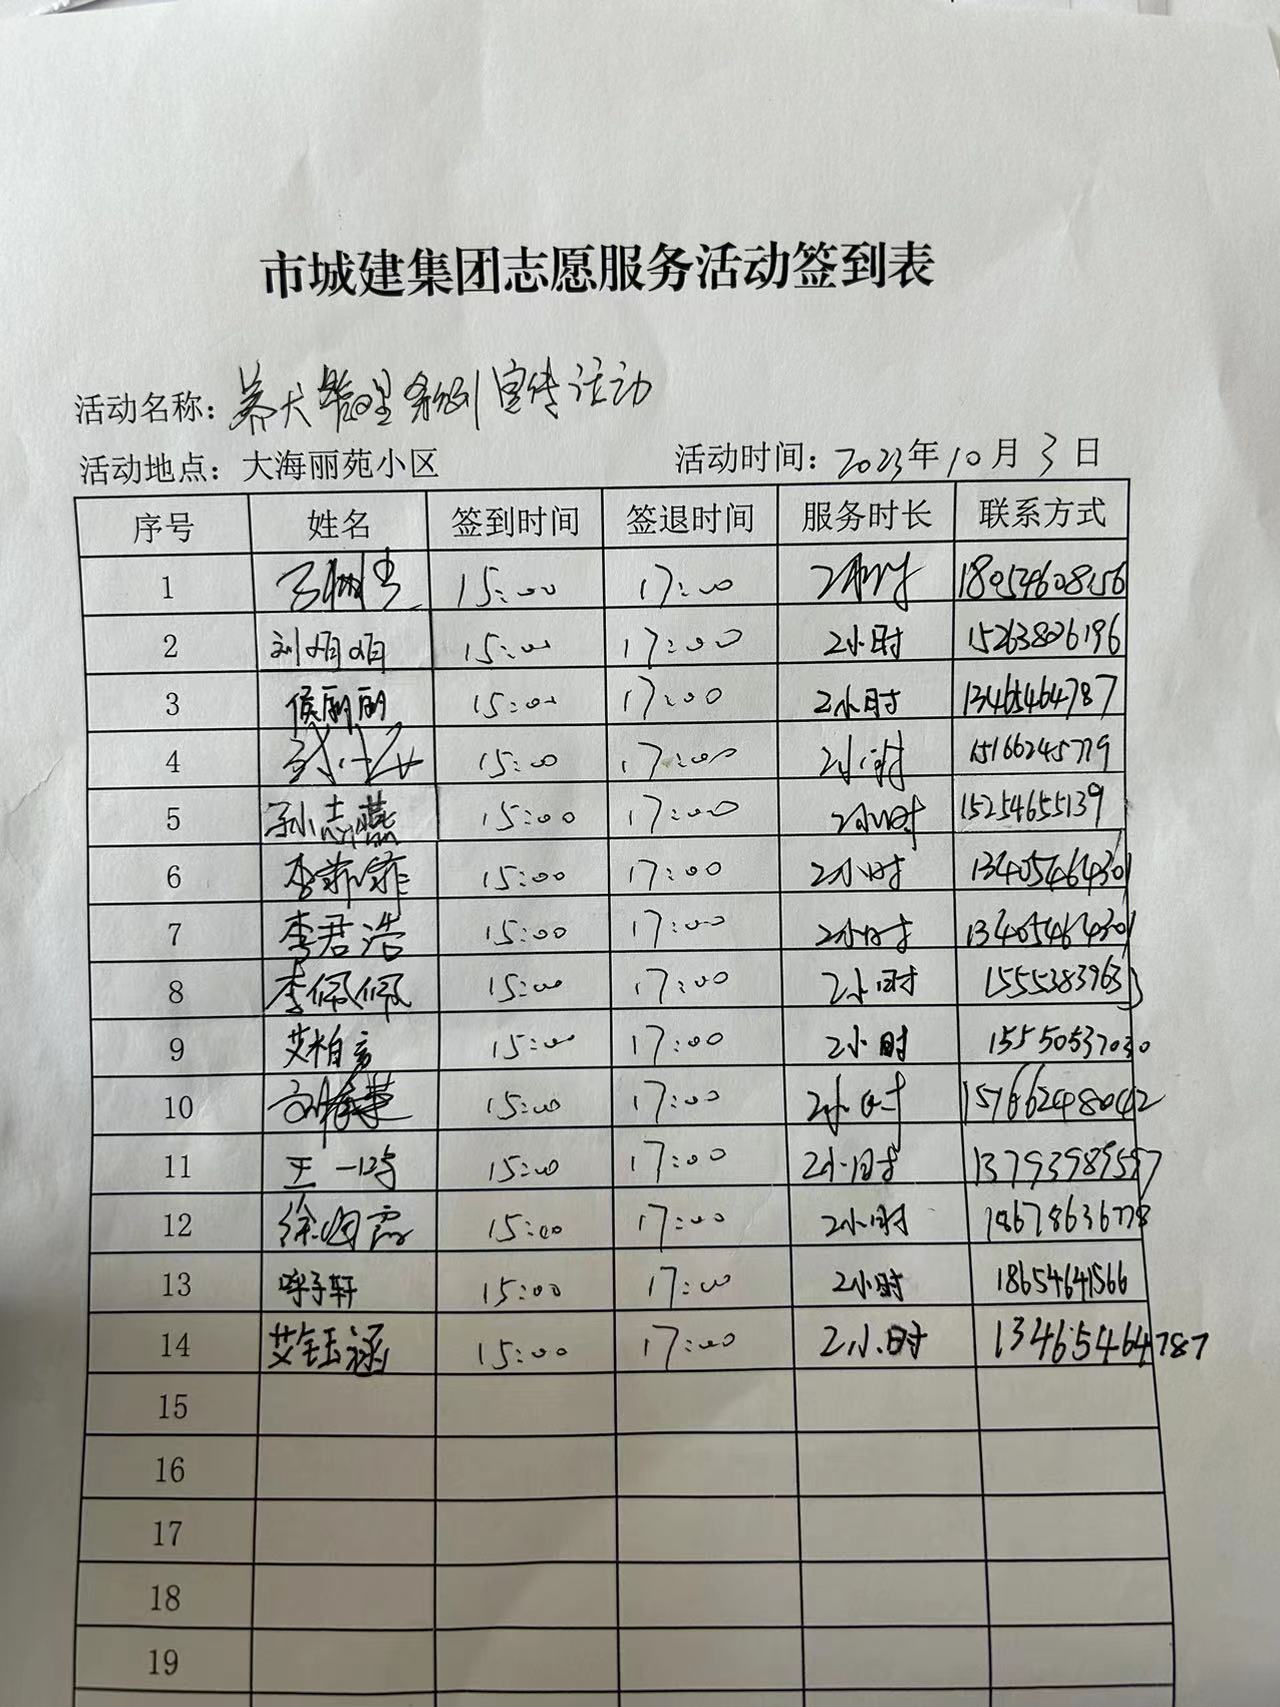 市城建集团志愿服务活动签到表
活动名称：养犬管理条例宣传活动
活动地点：大海丽苑小区 活动时间：2023年10月3日
序号 姓名 签到时间 签退时间 服务时长 联系方式
1 15:00 17:00 2小时 18054608256
2 刘娟娟 15:00 17:00 2小时 15263826196
3 侯丽丽 15:00 17:00 2小时 13465464787
4 15:00 17:00 2小时 15166245779
5 孙志燕 15:00 17:00 2小时 15254655139
6 李菲菲 15:00 17:00 2小时 13405464301
7 李君浩 15:00 17:00 2小时 13405464301
8 李佩佩 15:00 17:00 2小时 15553839633
9 艾柏言 15:00 17:00 2小时 15550537030
10 15:00 17:00 2小时 15766248042
11 王一 15:00 17:00 2小时 13793989597
12 徐 霞 15:00 17:00 2小时 18678636778
13 呼子轩 15:00 17:00 2小时 18654641566
14 艾钰涵 15:00 17:00 2小时 13465464787
15
16
17
18
19